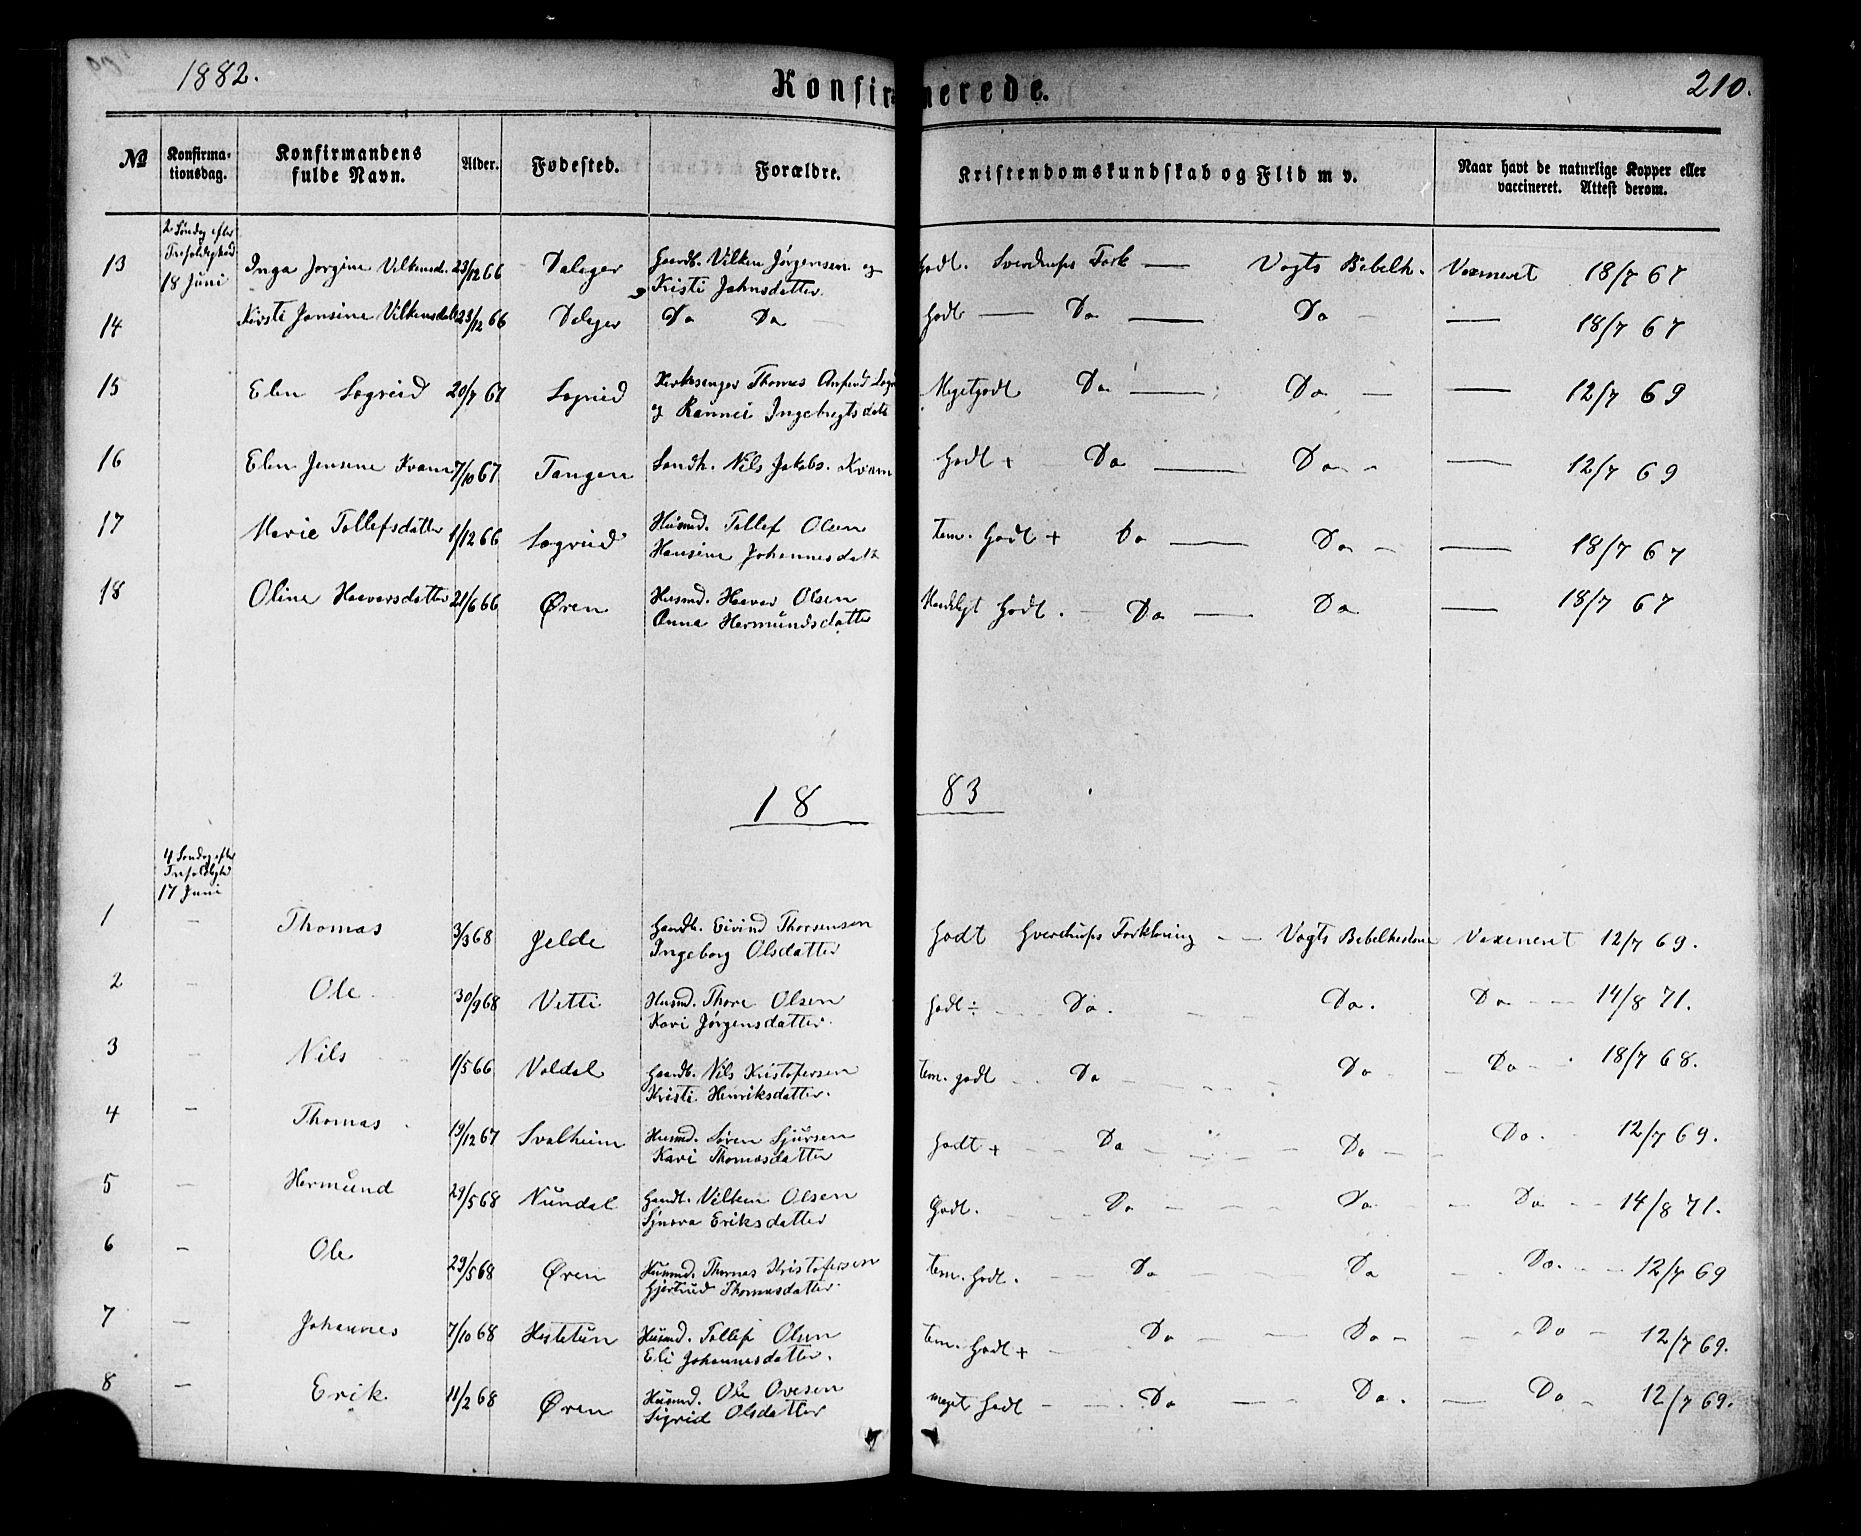 1882.
Konfirmerede.
210.
№ Konfirma-tionsdag. Konfirmandens fulde Navn. Alder. Fødested. Forældre. Kristendomskundskab og Flid m v. Naar havt de naturlige Kopper eller vaccineret. Attest derom.
2 Søndag efter
Trefoldighed
18 Juni
13 Inga Jørgine Vilkensd. 23/12 66 Daløger Gaardb. Vilken Jørgensen og Godt. Sverdrups Fork — Vogts Bibelh. Vaxineret 18/7 67
Kristi Johnsdatter.
14 Kirsti Jensine Vilkensdat 23/12 66 Daløger Do Do Godt — Do — Do — — 18/7 67
15 Elen Sogreid 20/7 67 Sogreid Kirkesanger Thomas Anfind Sogr Megetgodt Do — Do — — 12/7 69
og Rannei Ingebrigtsdatt
16 Elen Jensine Kvam 7/10 67 Tangen Landh. Nils Jakobs. Kvam Godt + Do — Do — — 12/7 69
17 Marie Tollefsdatter 1/12 66 Sogreid Husmd. Tollef Olsen Tem. Godt + Do — Do — — 18/7 67
Hansine Johannesdatt
18 Oline Haavarsdatter 21/6 66 Øren Husmd. Haavar Olsen Mandeligt Godt. — Do — Do — 18/7 67
Anna Hermundsdatter
1883
4 Søndag efter
Trefoldighd
17 Juni
1 — Thomas 3/3 68 Jelde Gaardb. Eivind Thorsensen Godt Sverdrups Forklaring — — Vogts Bibelhistorie Vaxineret 12/7 69.
Ingeborg Olsdatter
2 — Ole 30/9 68 Vetti Husmd. Thore Olsen Godt ÷ Do. Do. Do — — 14/8 71.
Kari Jørgensdatter.
3 — Nils 1/5 66 Voldal Gaardb. Nils Kristofersen Tem. godt Do Do — Do — 18/7 68.
Kristi Henriksdatter.
4 — Thomas 19/12 67 Svalheim Husmd. Søren Sjursen Godt + Do Do Do. 12/7 69.
Kari Thomasdatter
5 — Hermund 29/5 68 Nundal Gaardb. Vilken Olsen Godt. Do Do Do — — 14/8 71.
Synøva Eriksdatter
6 — Ole 29/5 68 Øren Husmd. Thomas Kristofersen Tem. Godt. Do Do Do. 12/7 69
Gjertrud Thomasdatter
7 — Johannes 7/10 68 Hestetun Husmd. Tollef Olsen Tem. Godt + Do Do — Do — 12/7 69.
Eli Johannesdatter.
8 — Erik 11/2 68 Øren Husmd. Ole Ovesen meget Godt Do Do. Do — 12/7 69.
Sigrid Olsdatter